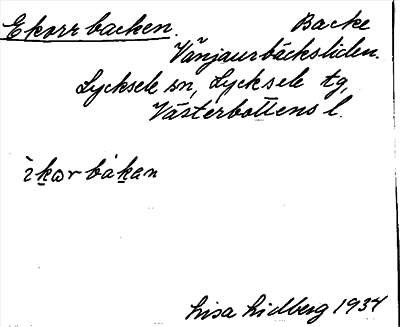 Ekorrbacken. Backe
Vänjaurbäcksliden.
Lycksele sn, Lycksele tg,
Västerbottens l.
ìkωr bàkan
Lisa Lidberg 1934